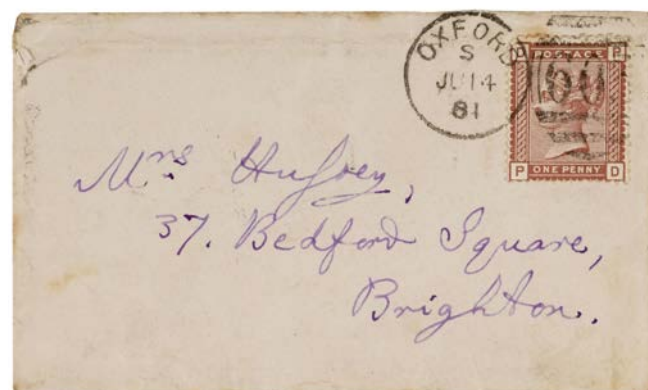 OXFORD
S
JU 14
81
POSTAGE
P D
ONE PENNY
Mrs
37. Bedford Square,
Brighton.